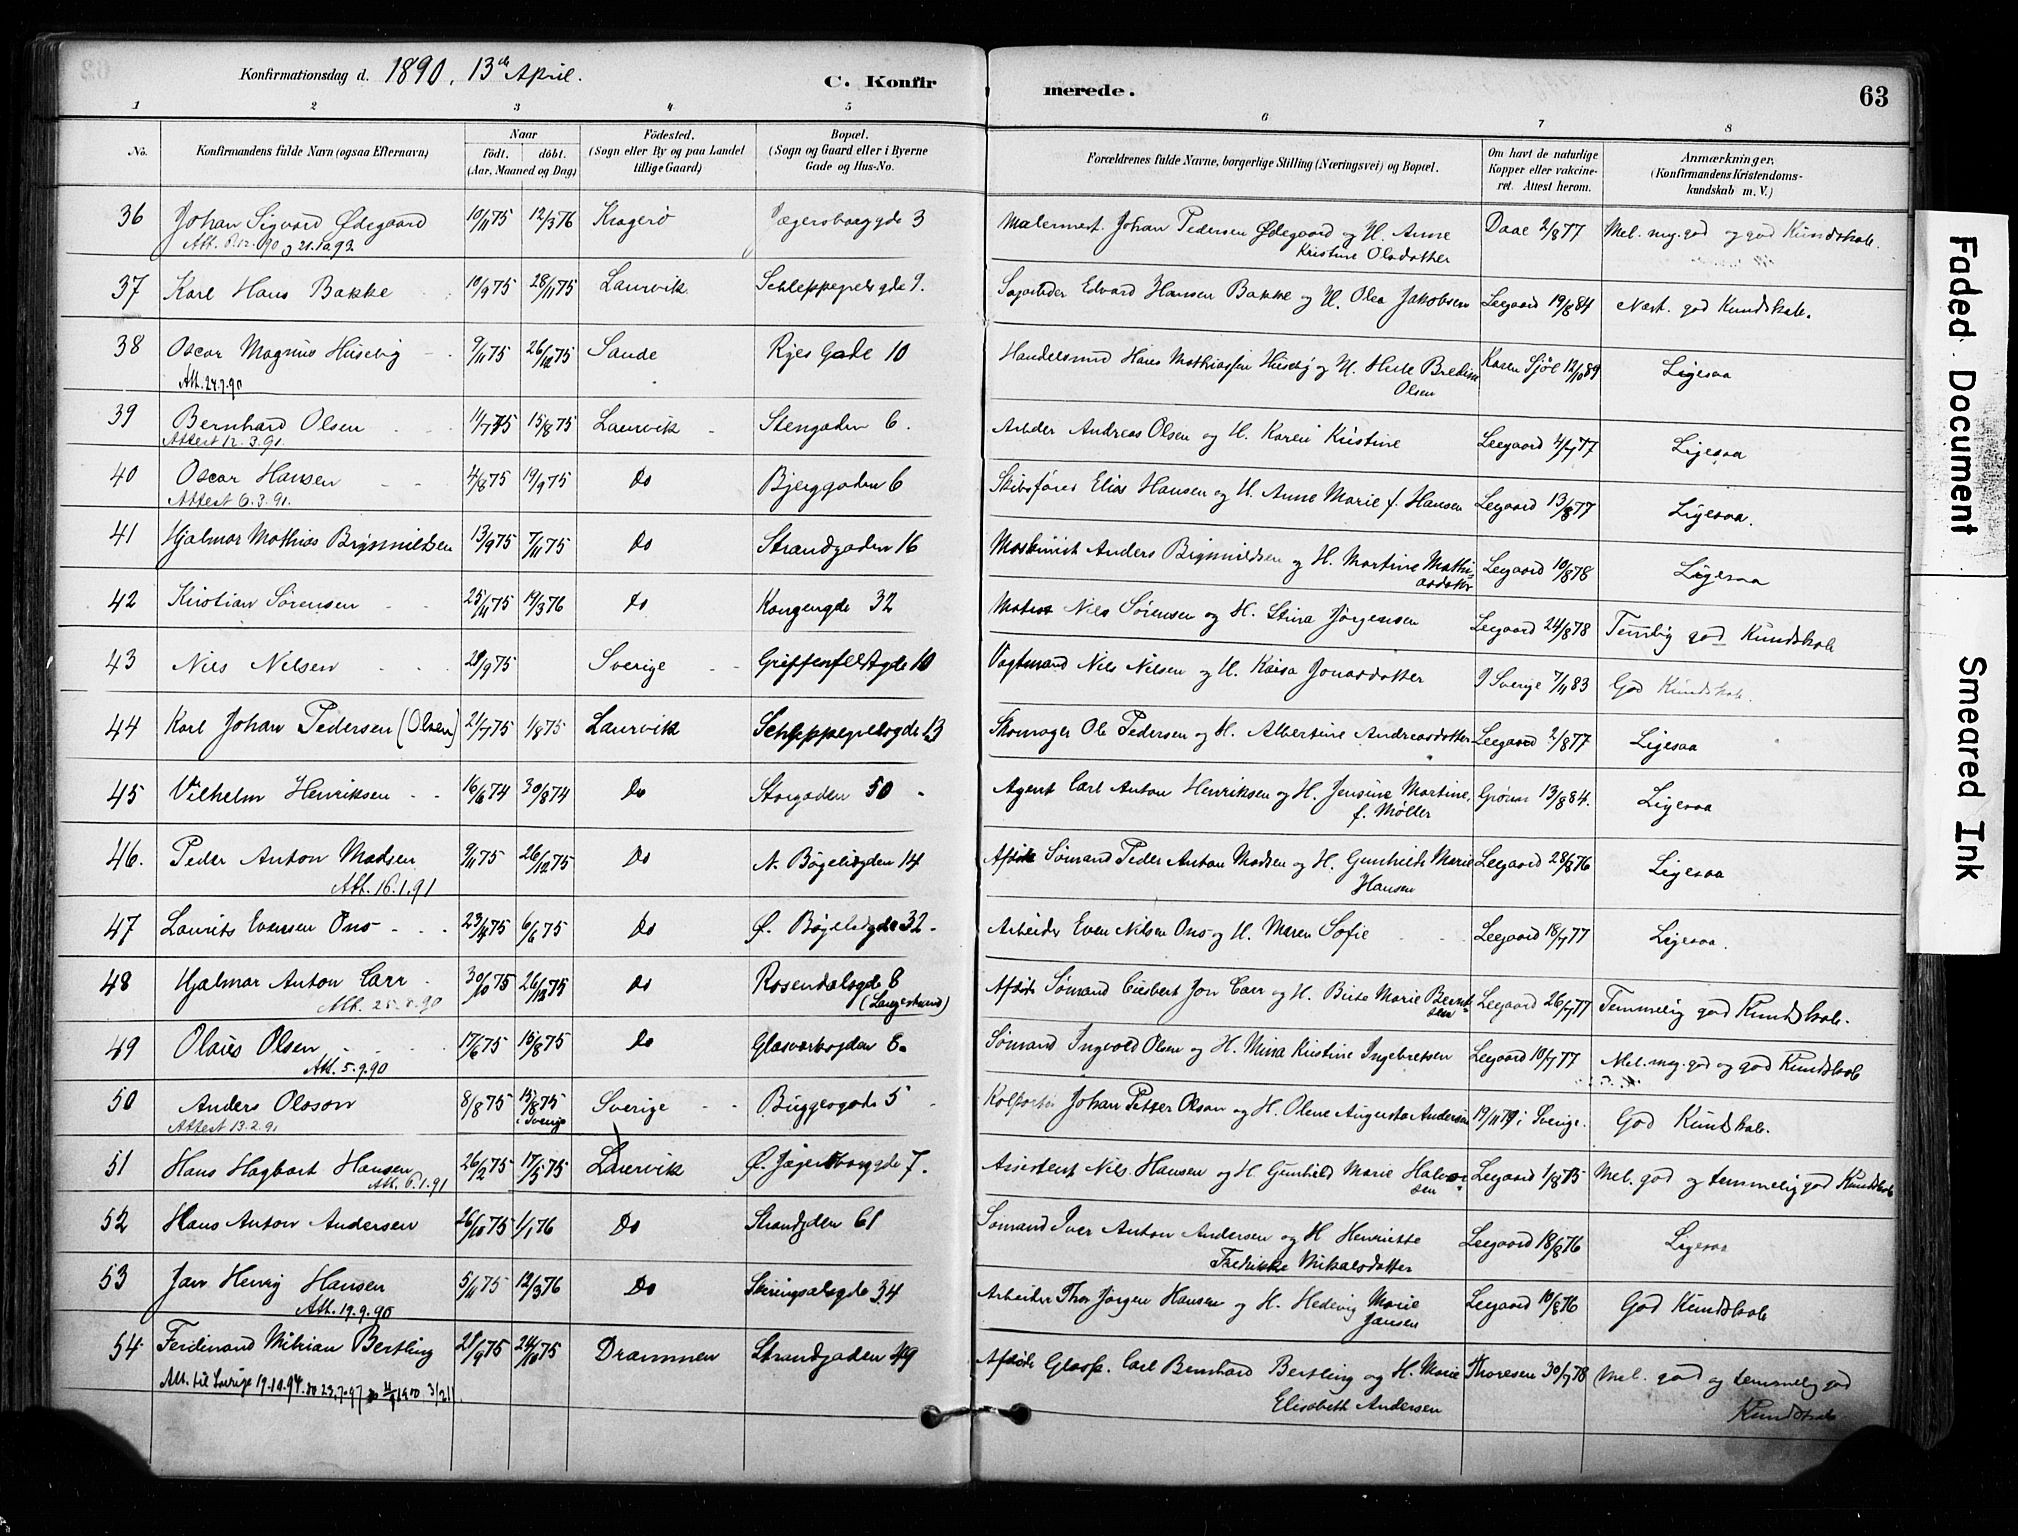 Konfirmationsdag d. 1890, 13de April.
C. Konfirmerede.
63
1 2 3 4 5 6 7 8
No. | Konfirmandens fulde Navn (ogsaa Efternavn) | Naar födt. döbt. (Aar, Maaned og Dag) | Födested. (Sogn eller By og paa Landet tillige Gaard) | Bopæl. (Sogn og Gaard eller i Byerne Gade og Hus-No. | Forældrenes fulde Navne, borgerlige Stilling (Næringsvei) og Bopæl. | Om havt de naturlige Kopper eller vakcineret. Attest herom. | Anmærkninger. (Konfirmandens Kristendomskundskab m. V.)
36 Johan Sigvard Ødegaard 10/11 75 12/3 76 Kragerö Jægersborggde 3 Malermest. Johan Pedersen Ødegaard og H. Anne Kristine Olsdatter Daae 2/8 77 Mel. mg. god og god Kundskab.
37 Karl Hans Bakke 10/9 75 28/11 75 Laurvik Schleppegrelsgde 9. Edvard Hansen Bakke og H. Olea Jakobsen Leegaard 19/8 84 Næst. god Kundskab.
38 Oscar Magnus Huseby 9/11 75 26/12 75 Sande Ryes Gade 10 Handelsmd Hans Mathiassen Huseby og H. Olsen Karen Sjöl 12/10 89 Ligesaa
Att. 24.7.90
39 Bernhard Olsen 11/7 75 15/8 75 Laurvik Stengaden 6. Arbder Andreas Olsen og H. Karen Kristine Leegaard 4/7 77 Ligesaa
Attest 12.3.91.
40 Oscar Hansen 4/8 75 19/9 75 Do Bjerggaden 6 Skibsförer Elias Hansen og H. Anne Marie f. Hansen Legaard 13/8 77 Ligesaa.
Attest 6.3.91.
41 Hjalmar Mathias Brynnildsen 13/9 75 7/11 75 Do Strandgaden 16 Maskinist Anders Brynnildsen og H. Martine Mathiasdatter Leegaard 10/8 78 Ligesaa
42 Kristian Sörensen 25/11 75 19/3 76 Do Kongensgde 32 Matros Nils Sörensen og H. Stina Jörgensen Leegaard 24/8 78 Temlig god Kundskab
43 Nils Nilsen 29/9 75 Sverige Griffenfeldtsgde 10 Vagtmand Nils Nilsen og H. Kaisa Jonasdatter I Sverige 7/11 83 God Kundskab.
44 Karl Johan Pedersen (Olsen) 21/7 75 1/8 75 Laurvik Schleppegrelsgde 13 Skomager Ole Pedersen og H. Albertine Andreasdatter Leegaard 2/8 77 Ligesaa
45 Vilhelm Henriksen 16/6 74 30/8 74 Do Storgaden 50 Agent Carl Anton Henriksen og H. Jensine Martine, f. Möller Grönn 13/8 84. Ligesaa
46. Peder Anton Madsen 9/11 75 26/12 75 Do N. Bögeligden 14 Afdöde Sömand Peder Anton Madsen og H. Gunhild Marie Hansen Leegaard 28/8 76 Ligesaa
Att. 16.1.91
47 Laurits Evensen Ono 23/4 75 6/6 75 Do Ø. Bögeligde 32. Arbeider Even Nilsen Ono og H. Maren Sofie Leegaard 18/7 77 Ligesaa.
48 Hjalmar Anton Carr 30/10 75 26/12 75 Do Rosendalsgde 8 (Langestrand) Afdöde Sömand Jon Carr og H. Birte Marie Berntsen Leegaard 26/7 77 Temmelig god Kundskab.
49 Olaus Olsen 17/6 75 15/8 75 Do Glasværksgden 6. Sömand Ingvald Olsen og H. Mina Kristine Ingebretsen Leegaard 10/7 77 Mel. mg. god og god Kundskab
Att. 5.9.90
50 Anders Olsson 8/8 75 15/8 75 i Sverige Sverige Buggesgade 5 Kolportör Johan Petter Olson og H. Olene Augusta Andersen 19/11 79 i Sverige. God Kundskab.
Attest 13.2.91
51 Hans Hagbart Hansen 26/2 75 17/5 75 Laurvik Ø. Jægersborggde 7. Assistent Nils Hansen og H. Gunhild Marie Halvorsen Leegaard 1/8 75 Mel. god og temmelig god Kundskab
Att. 6.1.91
52 Hans Anton Andersen 26/10 75 1/1 76 Do Strandgden 61 Sömand Iver Anton Andersen og H Henriette Fredrikke Mikalsdatter Leegaard 18/8 76 Ligesaa
53 Jan Henrÿ Hansen 5/11 75 12/3 76 Do Skiringsalsgde 34 Arbeider Thor Jörgen Hansen og H. Hedevig Marie Jansen Leegaard 10/8 76 God Kundskab
Att. 19.9.90
54 Ferdinand Bertling 21/9 75 24/10 75 Drammen Strandgaden 49 Afdöde Glasp. Carl Bernhard Bertling og H. Marie Elisabeth Andersen Thoresen 30/7 78 Mel. god og temmelig god Kundskab
Att. til Sverige 19.10.94.
Faded Document
Smeared Ink